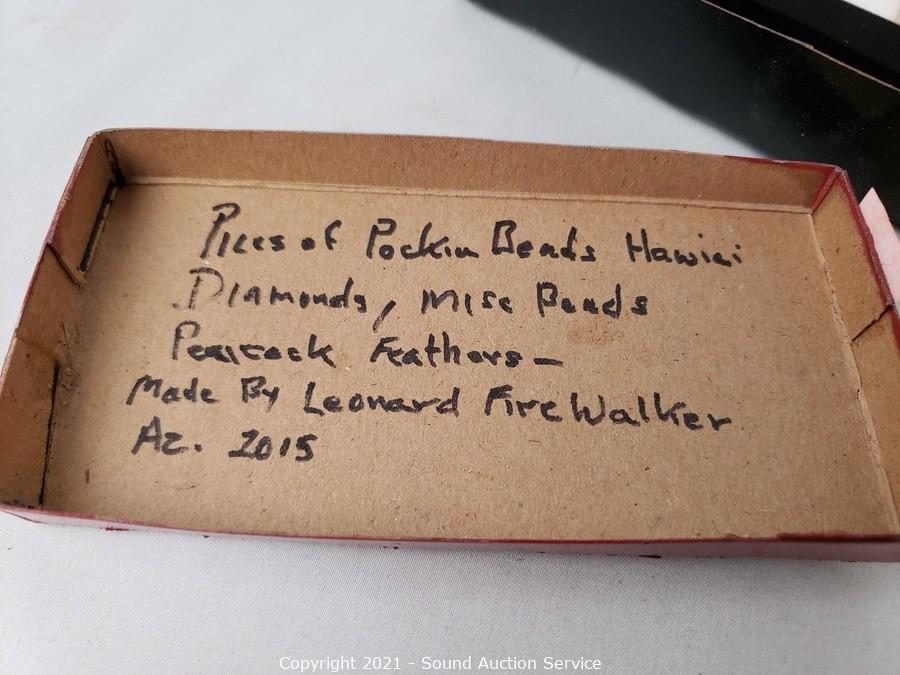 Pices of Pockin Beads Hawiei
Diamonds, Misc Beads
Peacock Feathers-
Made By Leonard FireWalker
Az. 2015
Copyright 2021 - Sound Auction Service